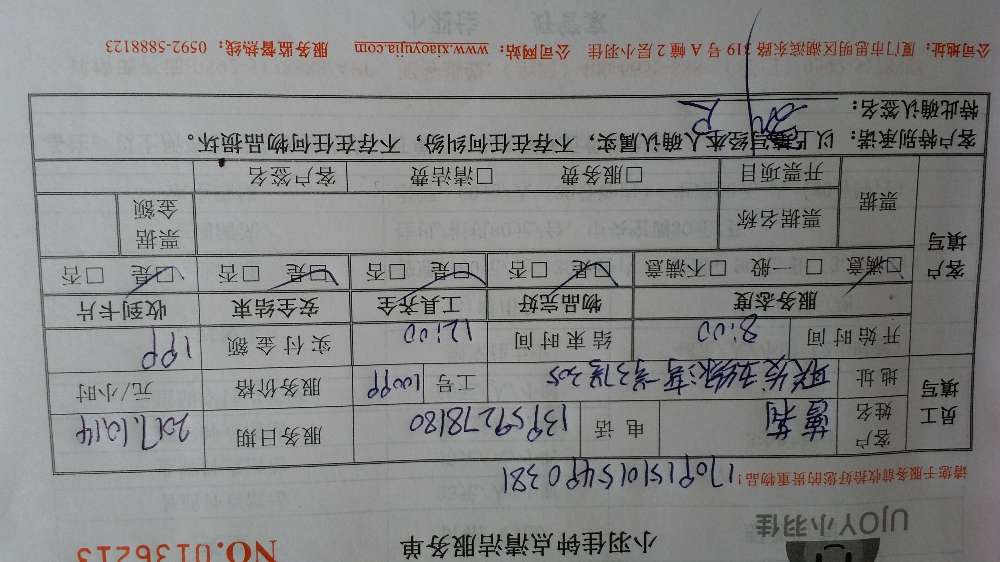 UJOY小羽佳
小羽佳钟点清洁服务单
NO.0136213
请您于服务前收拾好您的贵重物品!
1709151015490381
员工填写
客户姓名
电话 13959278180
服务日期 2017.10.14
地址
工号 10099
服务价格
元/小时
客户填写
开始时间 8:00
结束时间 12:00
实付金额 199
服务态度 物品完好 工具齐全 安全结束 收到卡片
☑满意 □一般 □不满意 ☑是 □否 ☑是 □否 ☑是 □否 ☑是 □否
票据
票据名称
票据金额
开票项目 □服务费 □清洁费 客户签名
客户特别承诺: 以上填写经本人确认属实,不存在任何纠纷,不存在任何物品损坏。
特此确认签名:
公司地址: 厦门市思明区湖滨东路319号A幢2层小羽佳 公司网站: www.xiaoyujia.com 服务监督热线: 0592-5888123